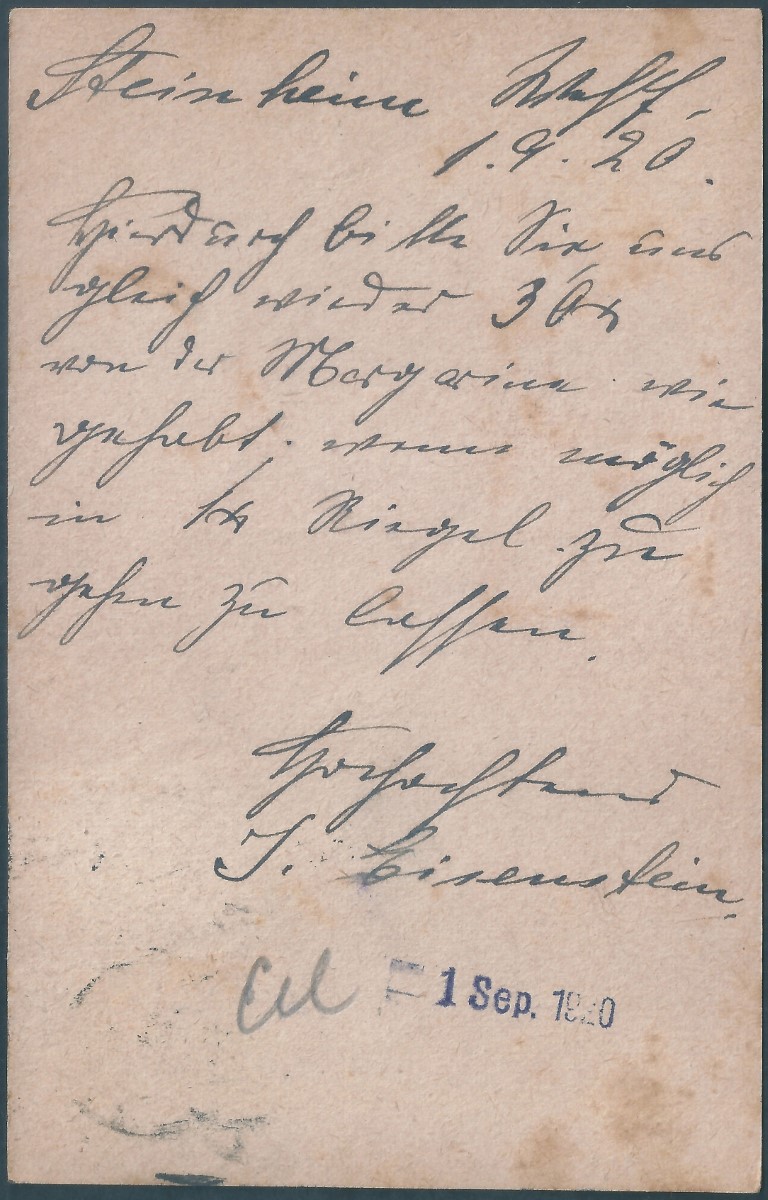 Steinheim Westf.
1.9.20.
Hierdurch bitte Sie, uns
gleich wieder 30 ℔
von der Margarine wie
gehabt, wenn möglich
in 1 ℔ Riegel zu
gehen zu lassen.
Hochachtend
J. Eisenstein.
-1 Sep. 1920